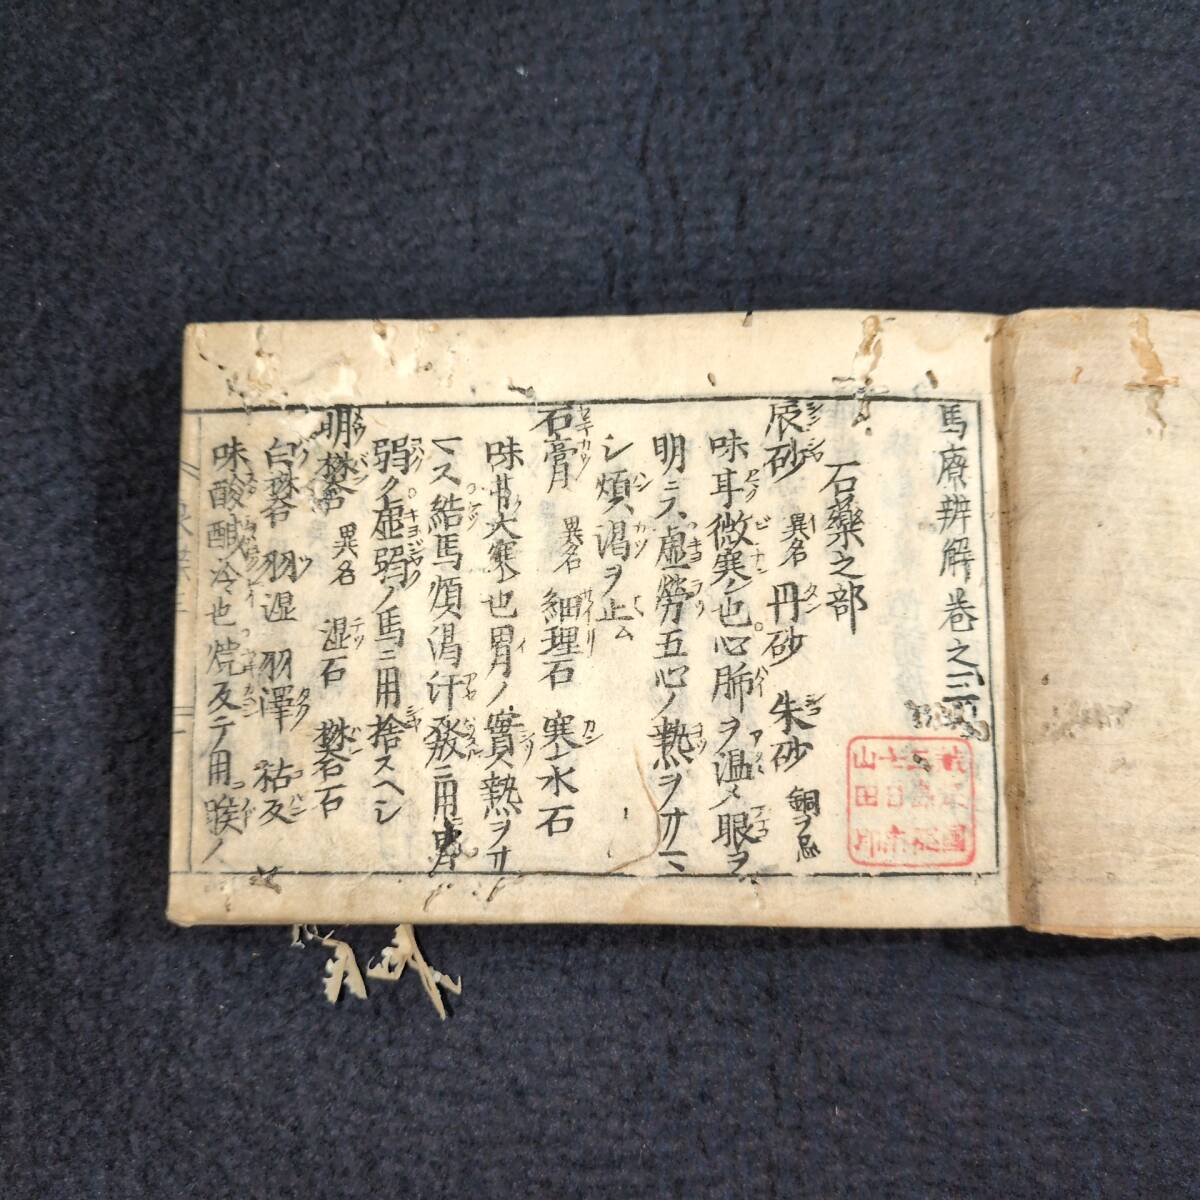 馬療辨解巻之三
石藥之部
辰砂 異名 丹砂 朱砂 銅ヲ忌
味耳微寒也心肺ヲ温メ眼ヲ
明ニス虚労五心ノ熱ヲサマ
シ煩渇ヲ止ム
石膏 異名 細理石 寒水石
味甘大寒也胃ノ實熱ヲサ
マス結馬煩渇汗發ニ用
弱ク虚弱ノ馬ニ用捨スヘシ
明礬 異名 涅石 礬石
白礬 羽涅 羽澤 祜反
味酸鹹冷也焼反テ用喉ノ
山田印